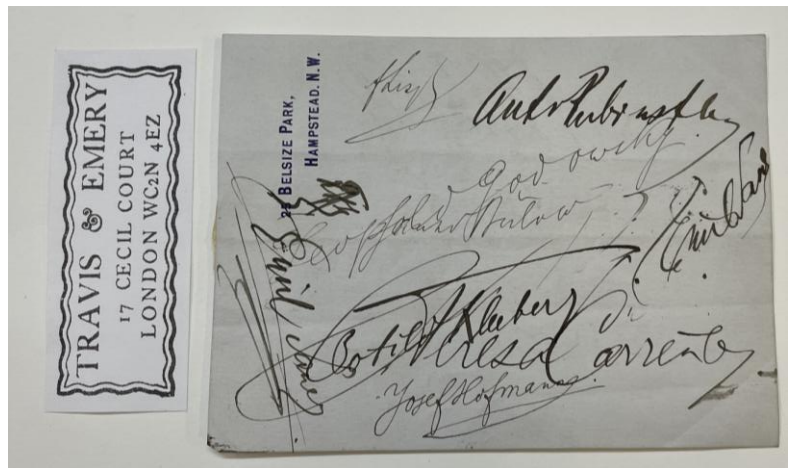 TRAVIS & EMERY
17 CECIL COURT
LONDON WC2N 4EZ
25 BELSIZE PARK,
HAMPSTEAD. N.W.
FLiszt
Ant Rubinstein
Leopold Godowsky
Bülow
Emil
Emil Sauer
Clotilde Kleeberg
Teresa Carreño
Josef Hofmann